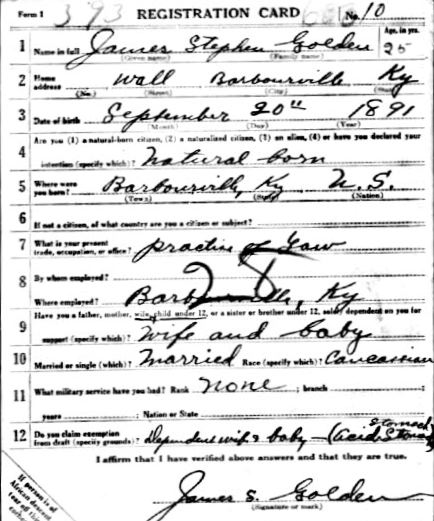 Form 1 393 REGISTRATION CARD No. 10
1 Name in full James Stephen Golden Age, in yrs. 25
(Given name) (Family name)
2 Home address Wall Barbourville Ky
(No.) (Street) (City)
3 Date of birth September 20" 1891
(Month) (Day) (Year)
Are you (1) a natural-born citizen, (2) a naturalized citizen, (3) an alien, (4) or have you declared your
4 intention (specify which)? Natural born
5 Where were you born? Barbourville, Ky U.S.
(Town) (State) (Nation)
6 If not a citizen, of what country are you a citizen or subject?
7 What is your present trade, occupation, or office? practice of Law
8 By whom employed?
Where employed? Barbourville, Ky
Have you a father, mother, wife, child under 12, or a sister or brother under 12, solely dependent on you for
9 support (specify which)? Wife and baby
10 Married or single (which)? Married Race (specify which)? Caucassian
11 What military service have you had? Rank none ; branch
years ; Nation or State
12 Do you claim exemption from draft (specify grounds)? Dependent wife & baby - (acid Stomach
I affirm that I have verified above answers and that they are true.
James S. Golden
(Signature or mark)
If person is of
African descent
tear off this